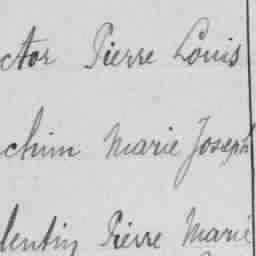 ctor Pierre Louis
chim Marie Joseph
lentin Pierre Marie